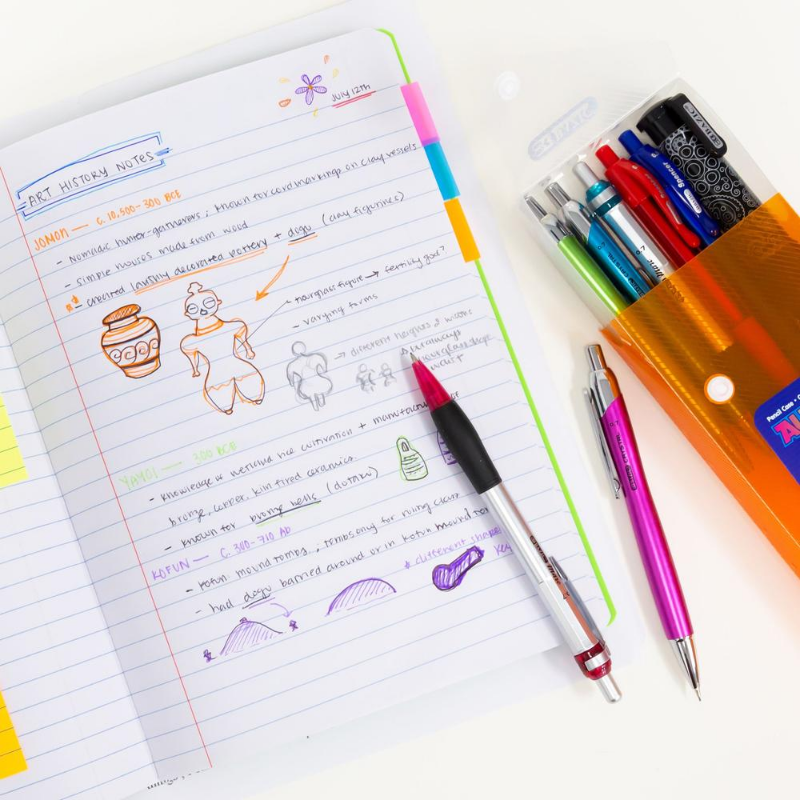 July 12th
ART HISTORY NOTES
JOMON — c. 10,500-300 BCE
- Nomadic hunter-gatherers; known for cord markings on clay vessels
- simple houses made from wood
- created lavishly decorated pottery + dogu (clay figurines)
hourglass figure → fertility god?
- varying forms
→ different heights & waists
always
hourglass shape
YAYOI — 300 BCE
- knowledge of wetland rice cultivation +
bronze, copper, kiln fired ceramics
- known for bronze bells (dotaku)
KOFUN — c. 300-710 AD
- kofun mound tombs, tombs only for ruling class
- had dogu barried around or in kofun mound
* different shape
key
Spencer
Pencil Case